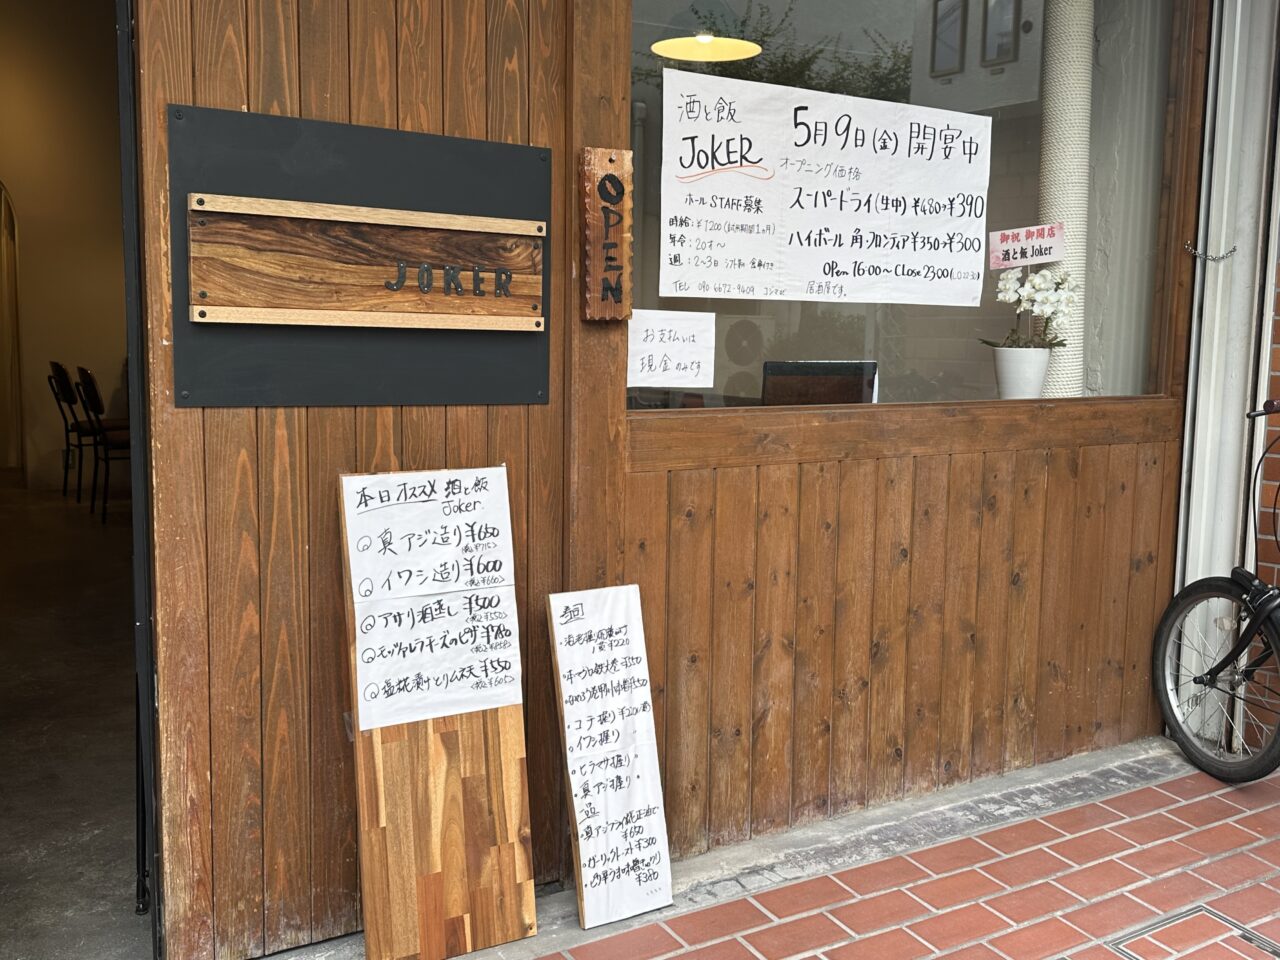 JOKER
OPEN
酒と飯
JOKER
5月9日(金)開宴中
オープニング価格
スーパードライ(生中) ¥480→¥390
ハイボール 角・フロンティア ¥350→¥300
OPen 16:00〜CLose 23:00(L.O 22:30)
居酒屋です。
ホールSTAFF募集
時給:¥1200(試用期間1ヵ月)
年令:20才〜
週:2〜3日 シフト制 食事付き
TEL 090 6672-9409
御祝 御開店
酒と飯 Joker
お支払いは
現金のみです
本日オススメ 酒と飯
Joker.
真アジ造り ¥650
<税込¥715>
イワシ造り ¥600
<税込¥660>
アサリ酒蒸し ¥500
<税込¥550>
モッツァレラチーズのピザ ¥780
<税込¥858>
塩糀漬けとりムネ天 ¥550
<税込¥605>
寿司
1貫¥220
・コチ握り
・イワシ握り
・ヒラマサ握り
・真アジ握り
一品
・真アジフライ
¥650
・ガーリックトースト ¥300
¥380